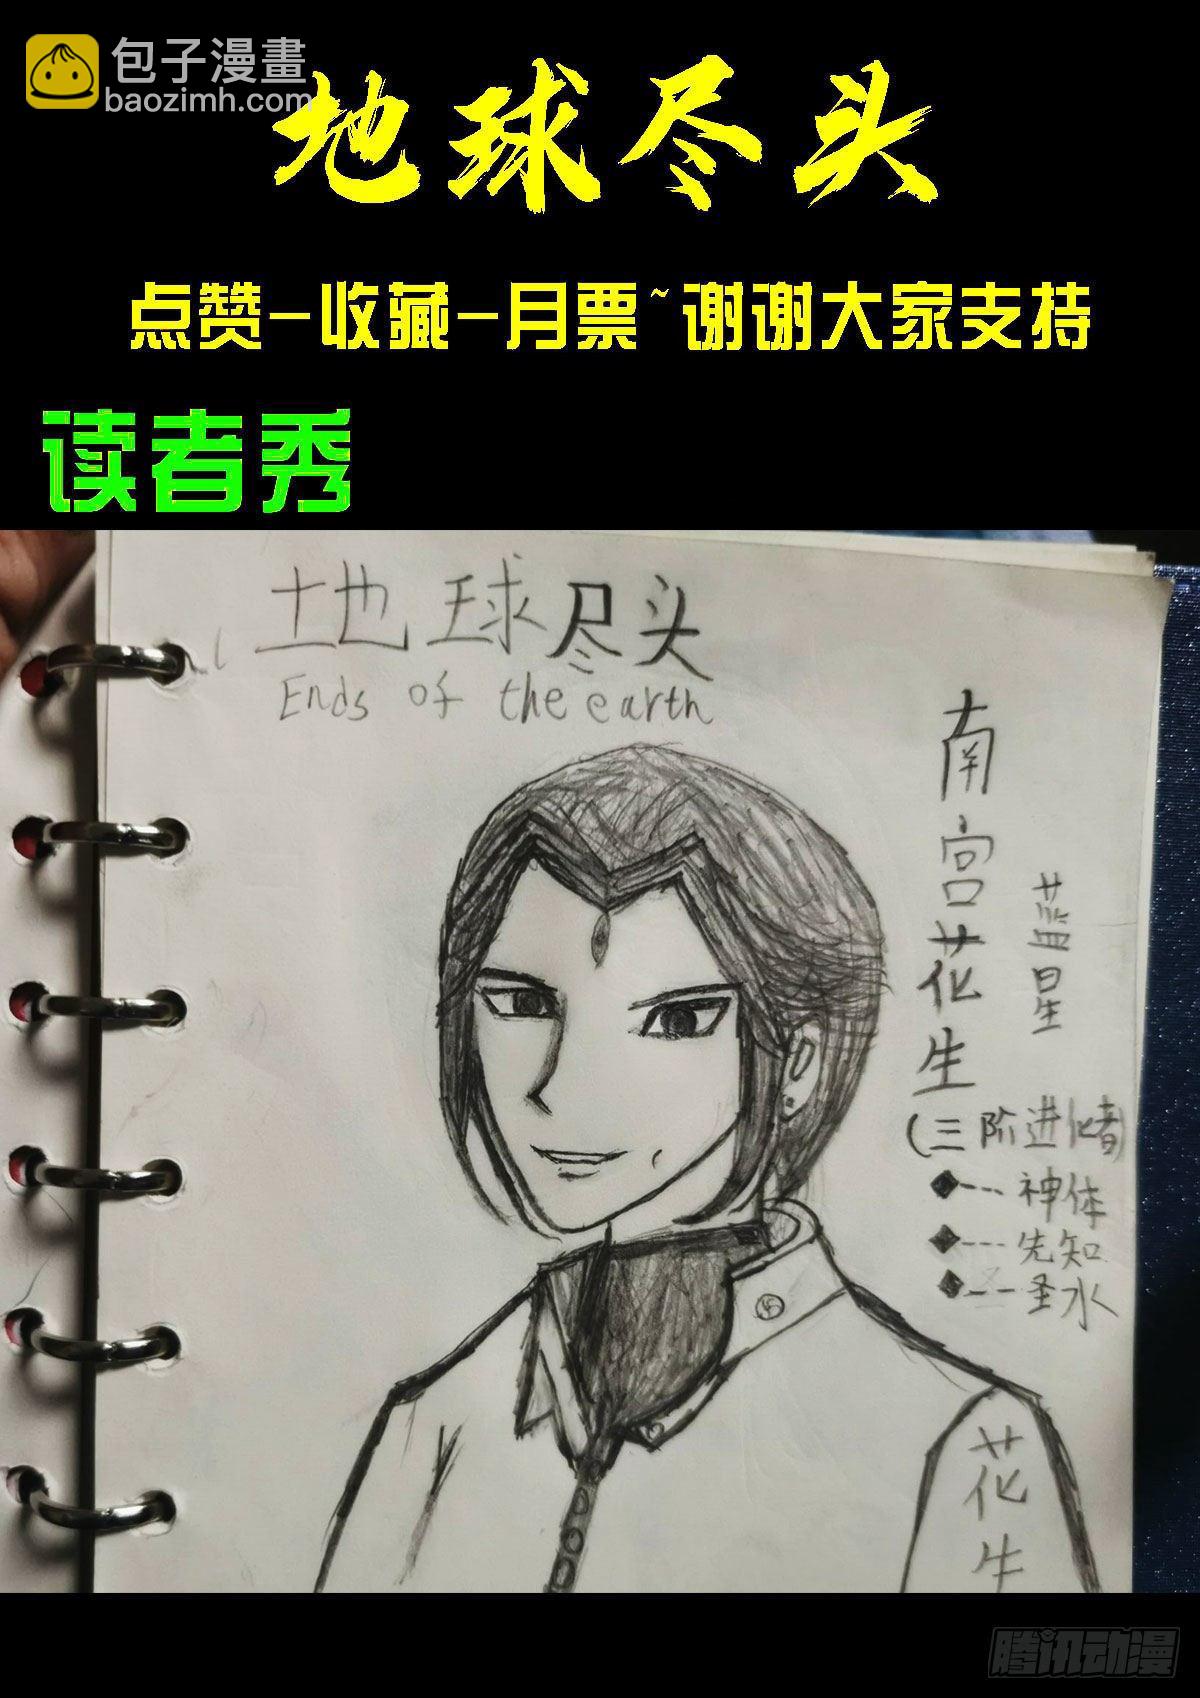 包子漫畫
baozimh.com
地球尽头
点赞-收藏-月票~谢谢大家支持
读者秀
地球尽头
Ends of the earth
南宫花生
蓝星
(三阶进化者)
神体
先知
圣水
花生
腾讯动漫